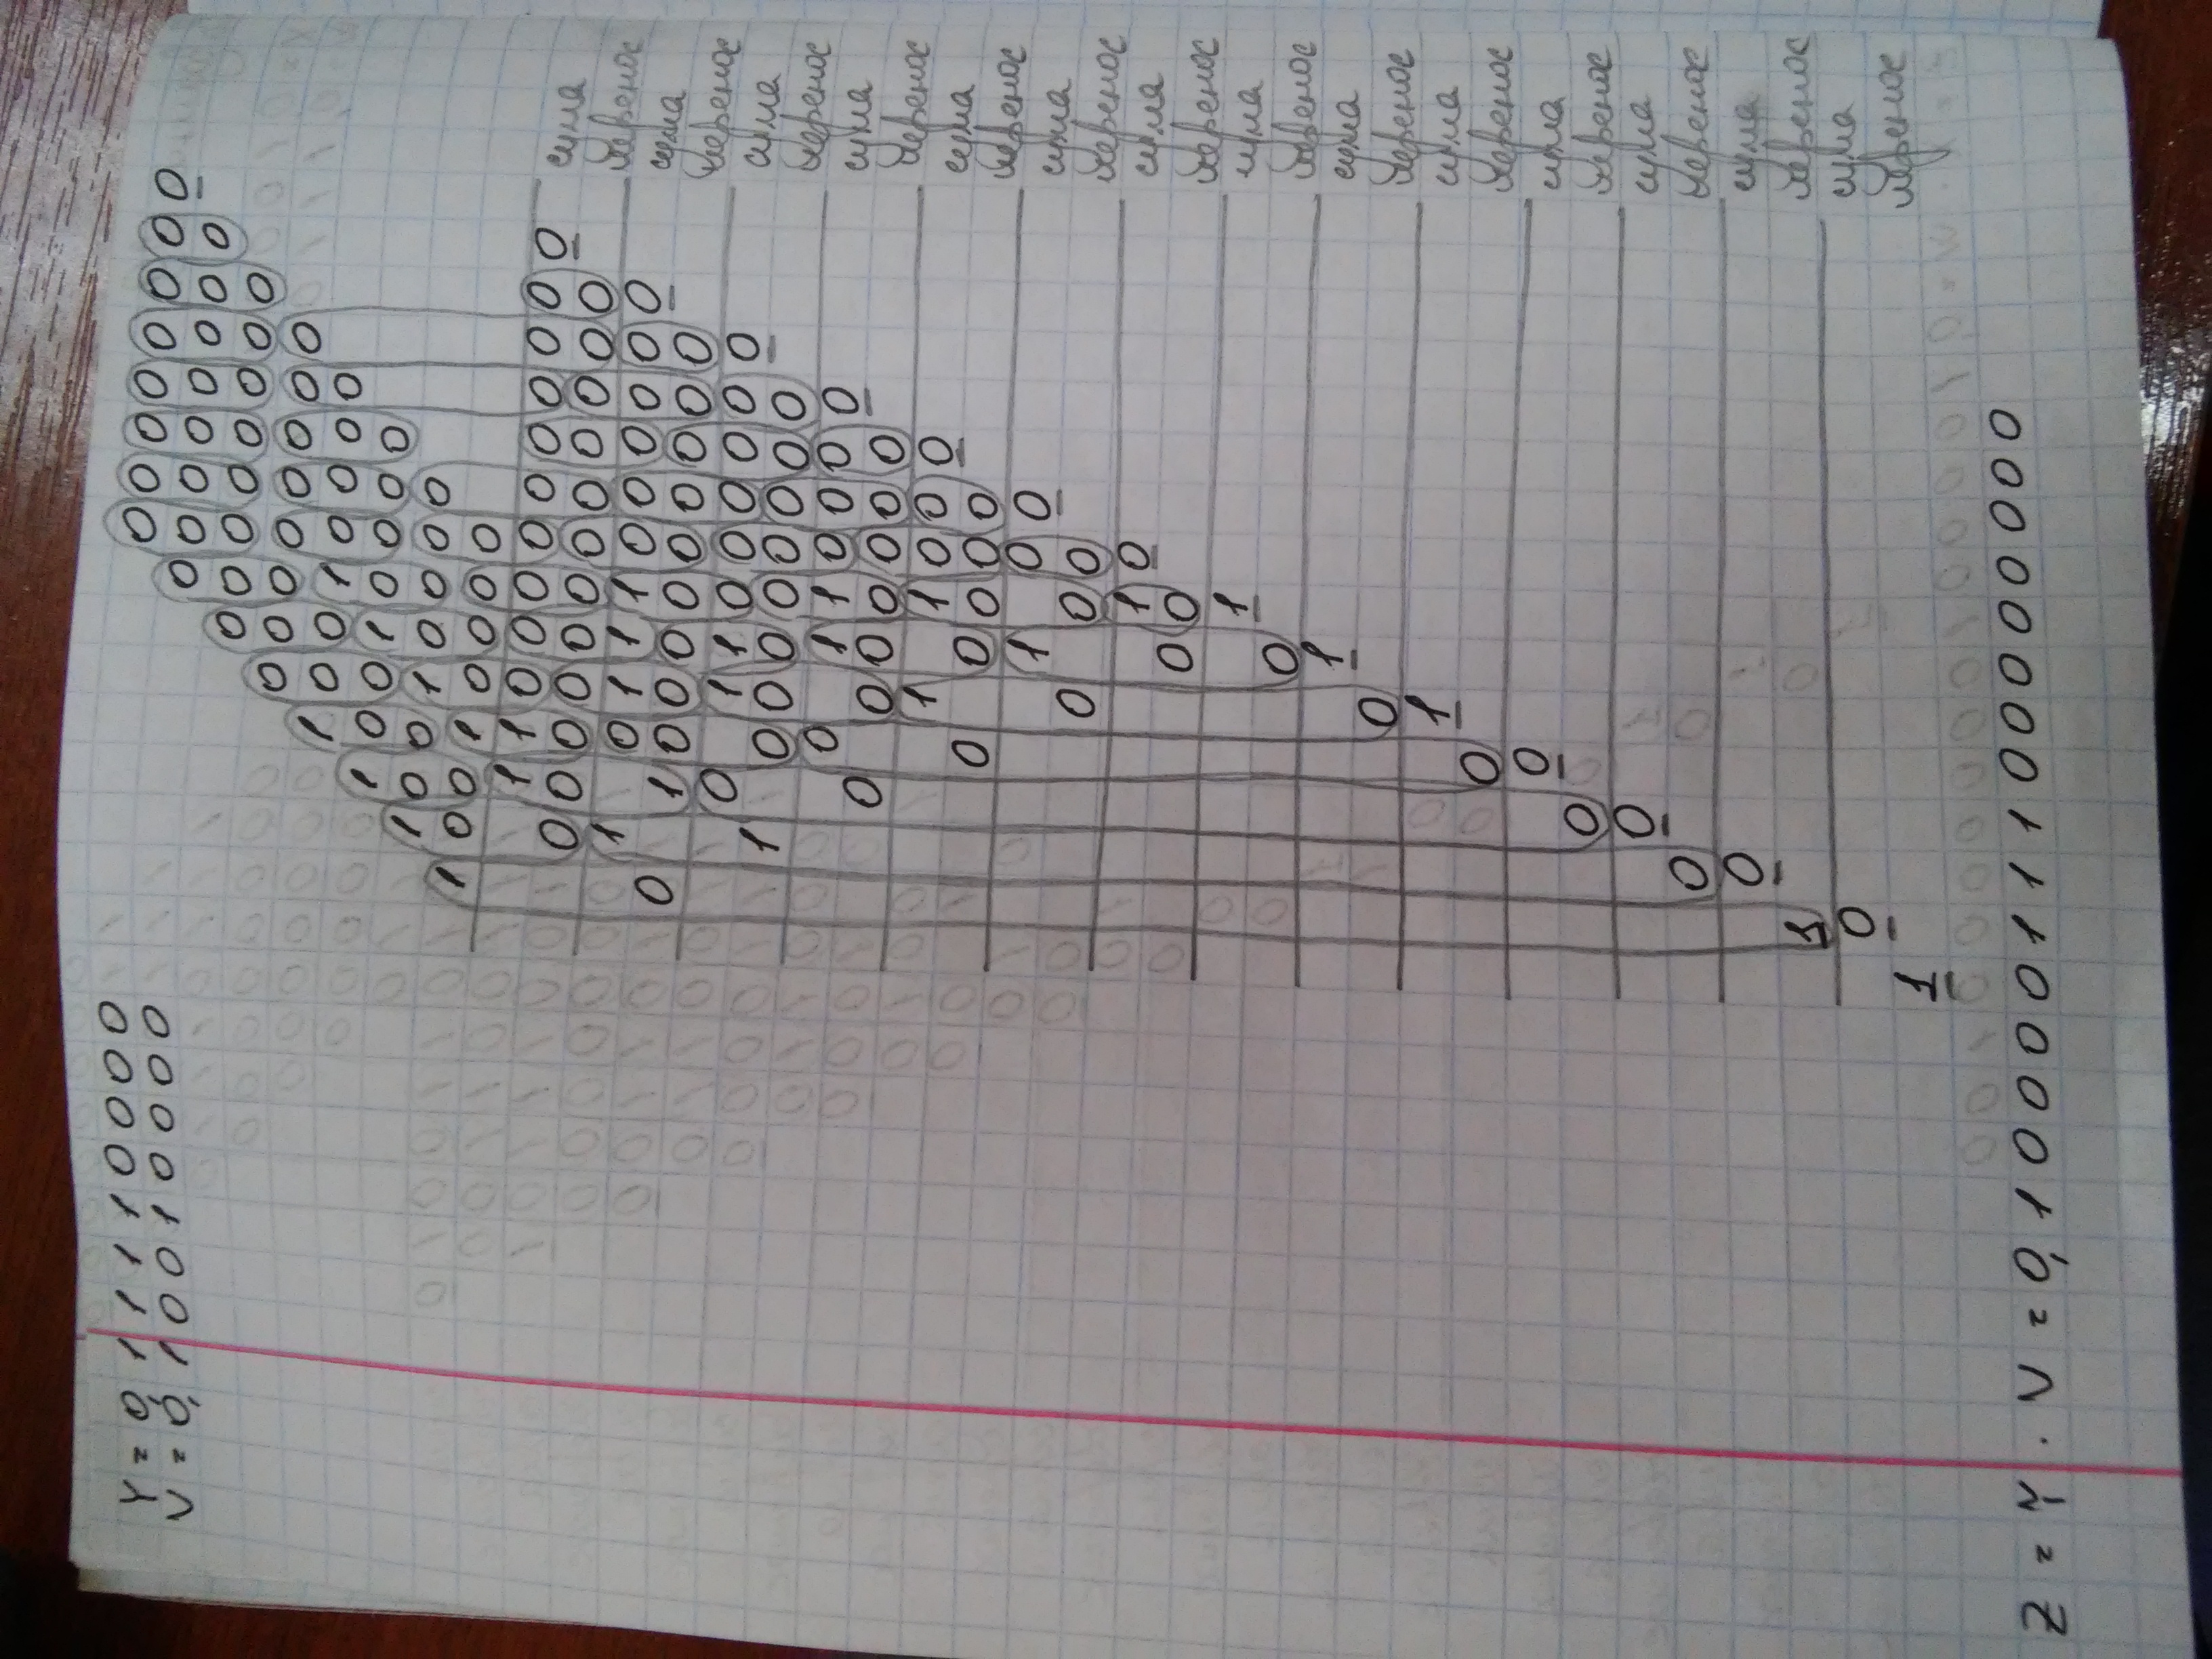 Y = 0,11110000
V = 0,10010000
0 0 0 0 0 0 0 0
0 0 0 0 0 0 0 0
0 0 0 0 0 0 0 0
0 0 0 0 0 0 0 0
1 0 0 1 0 0 0 0
1 0 0 1 0 0 0 0
1 0 0 1 0 0 0 0
1 0 0 1 0 0 0 0
1 1 0 0 0 0 0 0 0 0 0 0 сума
0 0 0 0 0 0 0 0 0 0 0 0 перенос
1 0 1 1 1 0 0 0 0 0 0 сума
0 1 0 0 0 0 0 0 0 0 0 перенос
0 1 1 0 0 0 0 0 0 сума
1 0 0 0 0 0 0 0 0 перенос
0 1 1 0 0 0 0 сума
0 0 0 0 0 0 0 перенос
1 1 0 0 0 сума
0 0 0 0 0 перенос
1 0 0 сума
0 0 0 перенос
1 0 сума
0 0 перенос
1 сума
0 перенос
1 сума
0 перенос
1 сума
0 перенос
0 сума
0 перенос
0 сума
0 перенос
0 сума
1 перенос
0 сума
1 перенос
Z = Y · V = 0,1000011100000000